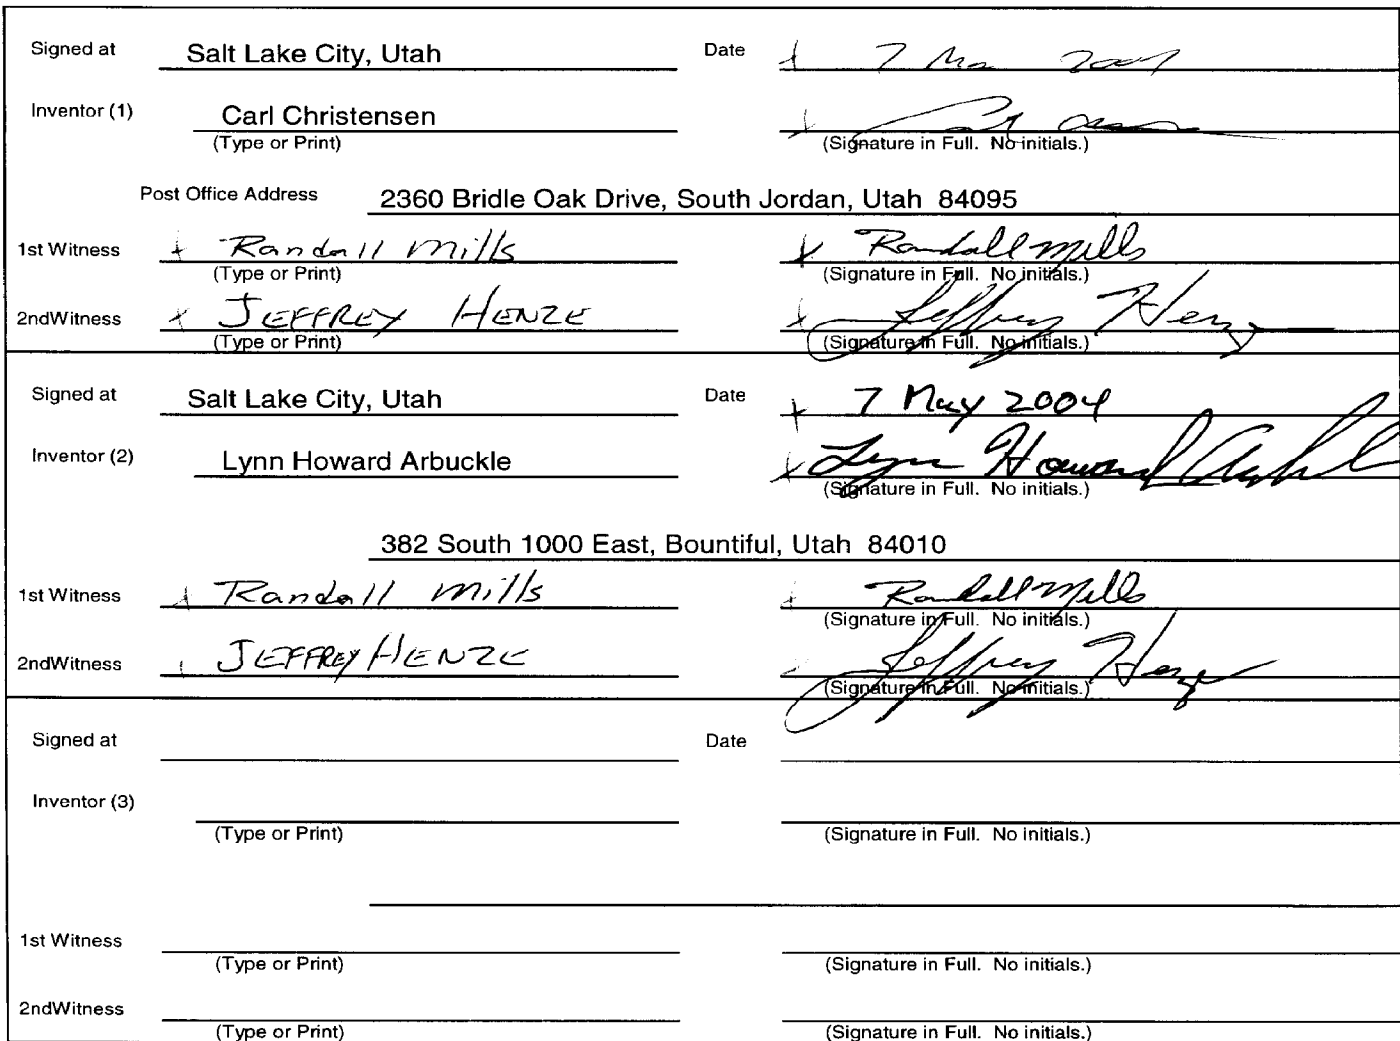 Signed at Salt Lake City, Utah Date 7 Ma 2004
Inventor (1) Carl Christensen
(Type or Print) (Signature in Full. No initials.)
Post Office Address 2360 Bridle Oak Drive, South Jordan, Utah 84095
1st Witness Randall Mills Randall Mills
(Type or Print) (Signature in Full. No initials.)
2ndWitness JEFFREY HENZE Jeffrey Henze
(Type or Print) (Signature in Full. No initials.)
Signed at Salt Lake City, Utah Date 7 May 2004
Inventor (2) Lynn Howard Arbuckle Lynn Howard
(Signature in Full. No initials.)
382 South 1000 East, Bountiful, Utah 84010
1st Witness Randall Mills Randall Mills
(Signature in Full. No initials.)
2ndWitness JEFFREY HENZE Jeffrey Henze
(Signature in Full. No initials.)
Signed at Date
Inventor (3)
(Type or Print) (Signature in Full. No initials.)
1st Witness
(Type or Print) (Signature in Full. No initials.)
2ndWitness
(Type or Print) (Signature in Full. No initials.)